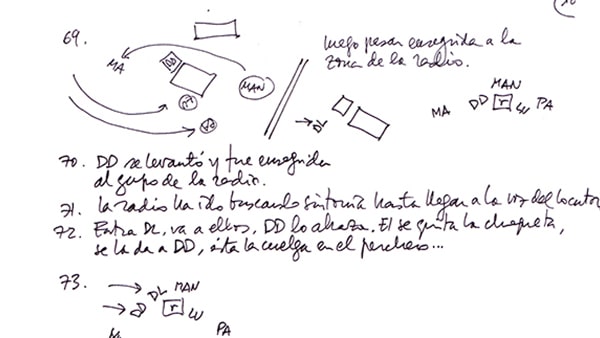 69.
MA
DD
MAN
PA
luego pasan enseguida a la
zona de la radio.
DL
MAN
MA DD r LU PA
70. DD se levantó y fue enseguida
al grupo de la radio.
71. La radio ha ido buscando sintonía hasta llegar a la voz del locutor,
72. Entra DL, va a ellos, DD lo abraza. El se quita la chaqueta,
se la da a DD, ésta la cuelga en el perchero...
73.
DL MAN
DD r LU
PA